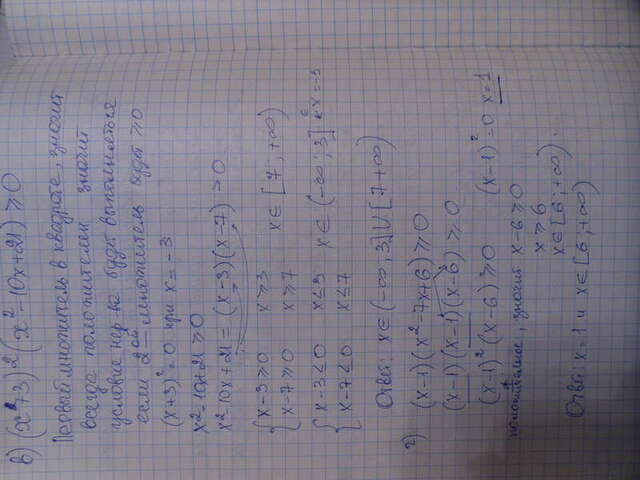 в) (x²+3)² (x²-10x+21) ≥ 0
Первый множитель в квадрате, значит
всегда положителен значит
условие нер-ва будет выполняться
если 2ой множитель будет ≥0
(x+3)²=0 при x=-3
x²-10+21≥0
x²-10x+21=(x-3)(x-7)>0
x-3≥0 x≥3
x-7≥0 x≥7 x∈[7;+∞)
x-3≤0 x≤3 x∈(-∞;3] x=-3
x-7≤0 x≤7
Ответ: x∈(-∞,3]∪[7+∞)
г) (x-1)(x²-7x+6)≥0
(x-1)(x-1)(x-6)≥0
(x-1)²(x-6)≥0 (x-1)²=0 x=1
положительное, значит x-6≥0
x≥6
x∈[6;+∞).
Ответ: x=1 и x∈[6;+∞)